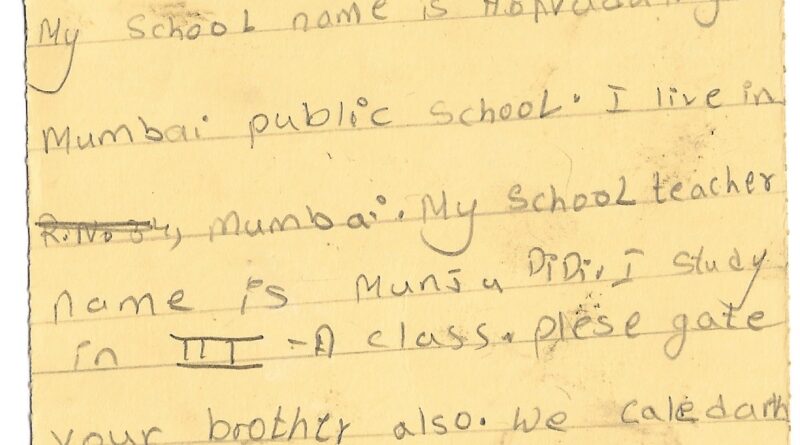 My School name is
Mumbai public School. I live in
R. No 34, Mumbai. My School teacher
name is Munju DiDi. I study
in III-A class. plese gate
your brother also. We